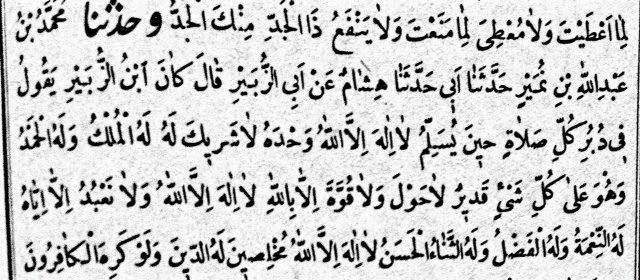 لِمَا اَعْطَيْتَ وَلَا مُعْطِىَ لِمَا مَنَعْتَ وَلَا يَنْفَعُ ذَا الْجَدِّ مِنْكَ الْجَدُّ وحَدَّثَنَا مُحَمَّدُ بْنُ
عَبْدِ اللّٰهِ بْنِ نُمَيْرٍ حَدَّثَنَا اَبِى حَدَّثَنَا هِشَامٌ عَنْ اَبِى الزُّبَيْرِ قَالَ كَانَ ابْنُ الزُّبَيْرِ يَقُولُ
فِى دُبُرِ كُلِّ صَلَاةٍ حِينَ يُسَلِّمُ لَا اِلٰهَ اِلَّا اللّٰهُ وَحْدَهُ لَا شَرِيكَ لَهُ لَهُ الْمُلْكُ وَلَهُ الْحَمْدُ
وَهُوَ عَلٰى كُلِّ شَىْءٍ قَدِيرٌ لَا حَوْلَ وَلَا قُوَّةَ اِلَّا بِاللّٰهِ لَا اِلٰهَ اِلَّا اللّٰهُ وَلَا نَعْبُدُ اِلَّا اِيَّاهُ
لَهُ النِّعْمَةُ وَلَهُ الْفَضْلُ وَلَهُ الثَّنَاءُ الْحَسَنُ لَا اِلٰهَ اِلَّا اللّٰهُ مُخْلِصِينَ لَهُ الدِّينَ وَلَوْ كَرِهَ الْكَافِرُونَ